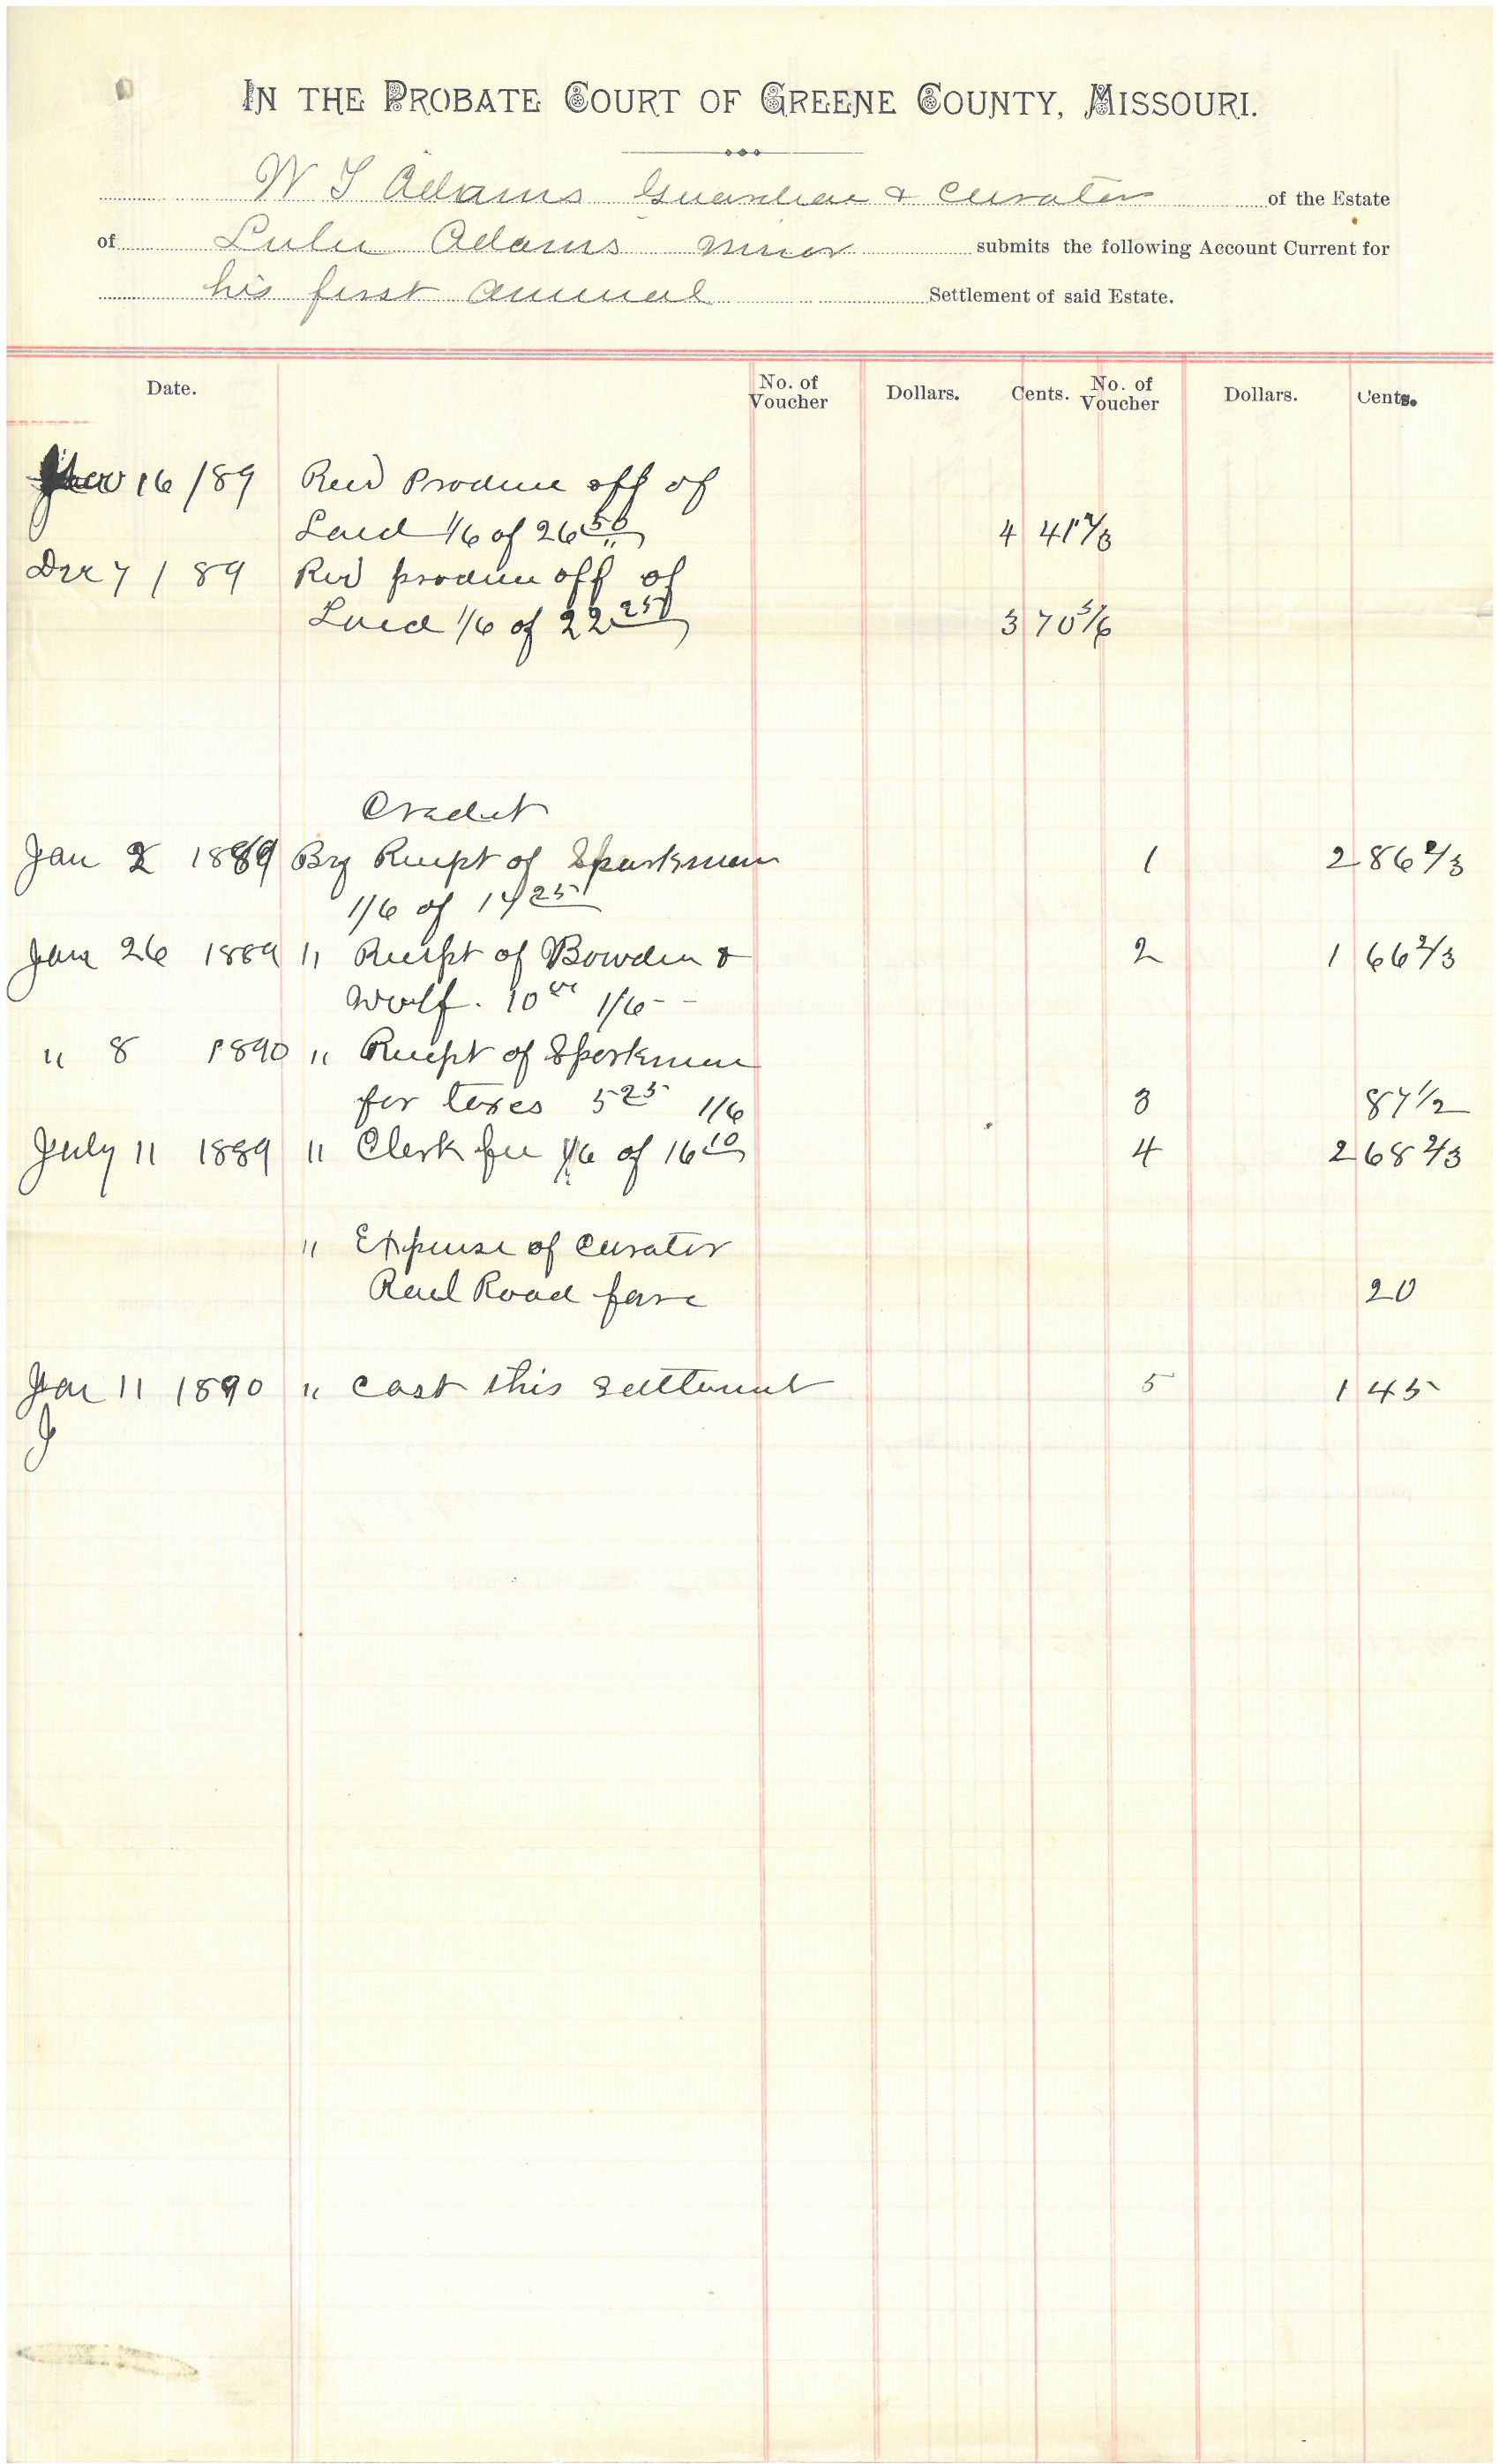 IN THE PROBATE COURT OF GREENE COUNTY, MISSOURI.
W S Adams Guardian & Curator of the Estate
of Lulu Adams minor submits the following Account Current for
his first annual Settlement of said Estate.
Date. No. of Voucher Dollars. Cents. No. of Voucher Dollars. Cents.
Nov 16 /89 Recd Produce off of
Land 1/6 of 26 50 4 41 2/3
Dec 7 / 89 Recd produce off of
Land 1/6 of 22 25 3 70 5/6
Credit
Jan 2 1889 By Receipt of Sparkman 1 2 86 2/3
1/6 of 17 25
Jan 26 1889 " Receipt of Bowden & 2 1 66 2/3
Wolf. 10 00 1/6 - -
" 8 1890 " Receipt of Sparkman
for taxes 5 25 1/6 3 87 1/2
July 11 1889 " Clerk fee 1/6 of 16 10 4 2 68 2/3
" Expense of Curator
Rail Road fare 20
Jan 11 1890 " Cost this settlement 5 1 45
J